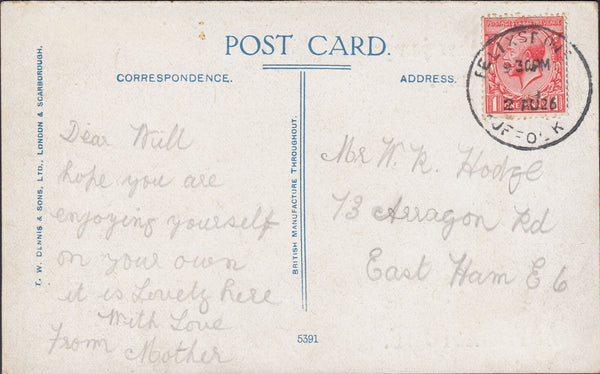 POST CARD.
CORRESPONDENCE.
ADDRESS.
T. W. DENNIS & SONS, LTD., LONDON & SCARBOROUGH.
BRITISH MANUFACTURE THROUGHOUT.
Dear Will
hope you are
enjoying yourself
on your own
it is Lovely here
With Love
From Mother
Mr W. R. Hodge
73 Arragon Rd
East Ham E 6
5391
9 30PM
2 AU26
SUFFOLK